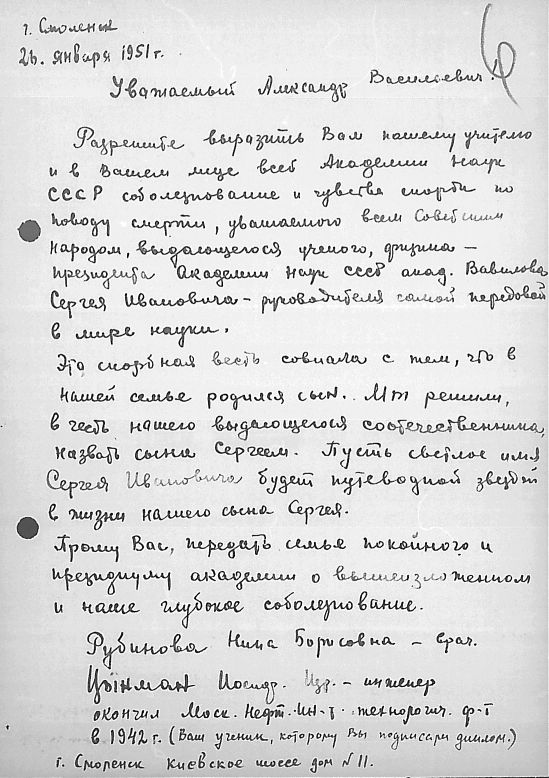 г. Смоленск
26. января 1951 г.
Уважаемый Александр Васильевич!
Разрешите выразить Вам нашему учителю
и в Вашем лице всей Академии Наук
СССР соболезнование и чувства скорби по
поводу смерти, уважаемого всем Советским
народом, выдающегося ученого, физика –
президента Академии Наук СССР акад. Вавилова
Сергея Ивановича – руководителя самой передовой
в мире науки.
Эта скорбная весть совпала с тем, что в
нашей семье родился сын. Мы решили,
в честь нашего выдающегося соотечественника,
назвать сына Сергеем. Пусть светлое имя
Сергея Ивановича будет путеводной звездой
в жизни нашего сына Сергея.
Прошу Вас, передать семье покойного и
президиуму академии о вышеизложенном
и наше глубокое соболезнование.
Рубинова Нина Борисовна – врач.
Цынман Иосиф. Изр. – инженер
окончил Моск. Нефт. Ин-т. технологич. ф-т
в 1942 г. (Ваш ученик, которому Вы подписали диплом.)
г. Смоленск Киевское шоссе дом № 11.